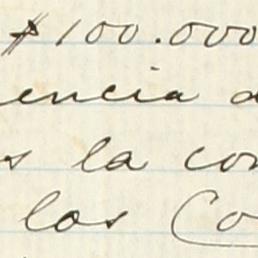 $100.000
encia a
s la con
los Co